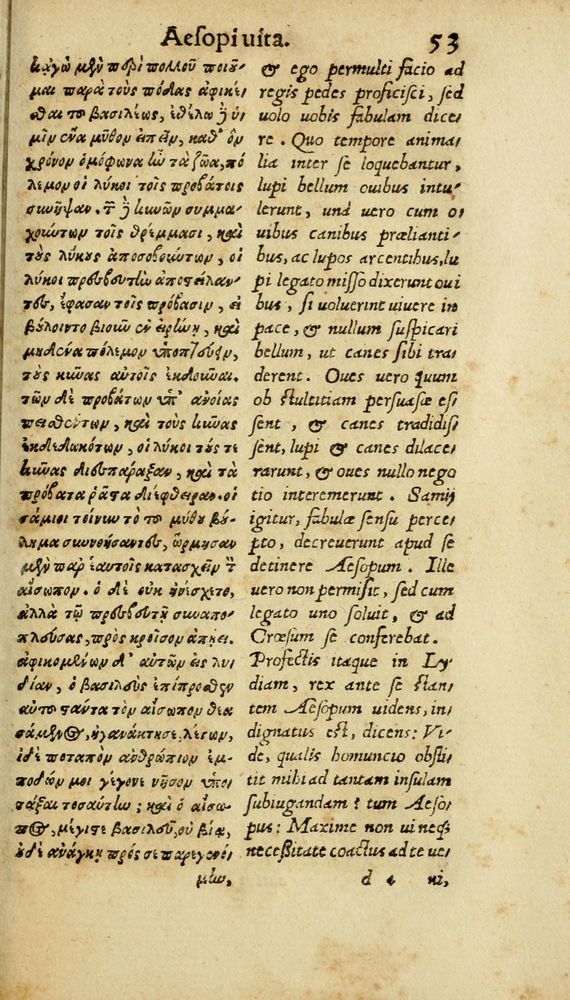 Aesopi uita. 53
κἀγὼ μὲν περὶ πολλοῦ ποιοῦ-
μαι παρὰ τοὺς πόδας ἀφικέ-
σθαι τοῦ βασιλέως, ἐθέλω δὲ ὑ-
μῖν ἕνα μῦθον εἰπεῖν, καθ᾽ ὃν
χρόνον ὁμόφωνα ἦν τὰ ζῶα, πό
λεμον οἱ λύκοι τοῖς προβάτοις
συνῆψαν. τῶν δὲ κυνῶν συμμα-
χούντων τοῖς θρέμμασι, καὶ
τοὺς λύκους ἀποσοβούντων, οἱ
λύκοι πρεσβευτὴν ἀποστείλαν-
τες, ἔφασαν τοῖς πρόβασιν, εἰ
βούλοιντο βιοῦν ἐν εἰρήνῃ, καὶ
μηδένα πόλεμον ὑποπτεύειν,
τοὺς κύνας αὐτοῖς ἐκδοῦναι.
τῶν δὲ προβάτων ὑπ᾽ ἀνοίας
πεισθέντων, καὶ τοὺς κύνας
ἐκδεδωκότων, οἱ λύκοι τούς τε
κύνας διεσπάραξαν, καὶ τὰ
πρόβατα ῥᾷστα διέφθειραν. οἱ
σάμιοι τοίνυν τὸ τοῦ μύθου βού-
λημα συννοήσαντες, ὥρμησαν
μὲν παρ᾽ ἑαυτοῖς κατασχεῖν τὸν
αἴσωπον. ὁ δὲ οὐκ ἠνέσχετο,
ἀλλὰ τῷ πρεσβευτῇ συναπο-
πλεύσας, πρὸς κροῖσον ἀπῄει.
ἀφικομένων δ᾽ αὐτῶν εἰς λυ-
δίαν, ὁ βασιλεὺς ἐπίπροσθεν
αὐτοῦ στάντα τὸν αἴσωπον θεα
σάμενος, ἠγανάκτησε, λέγων,
ἴδε ποταπὸν ἀνθρώπιον ἐμ-
ποδών μοι γέγονε νῆσον ὑπο-
τάξαι τοσαύτην; καὶ ὁ αἴσω-
πος, μέγιστε βασιλεῦ, οὐ βίᾳ,
οὐδὲ ἀνάγκῃ πρός σε παρεγενό-
μην,
& ego permulti facio ad
regis pedes proficisci, sed
uolo uobis fabulam dice
re. Quo tempore anima-
lia inter se loquebantur,
lupi bellum ouibus intu-
lerunt, unà uero cum o-
uibus canibus prælianti-
bus, ac lupos arcentibus, lu
pi legato misso dixerunt oui
bus, si uoluerint uiuere in
pace, & nullum suspicari
bellum, ut canes sibi tra-
derent. Oues uero quum
ob stultitiam persuasæ es-
sent, & canes tradidis-
sent, lupi & canes dilace-
rarunt, & oues nullo nego
tio interemerunt. Samij
igitur, fabulæ sensu perce-
pto, decreuerunt apud se
detinere Aesopum. Ille
uero non permisit, sed cum
legato uno soluit, & ad
Crœsum se conferebat.
Profectis itaque in Ly-
diam, rex ante se stan-
tem Aesopum uidens, in-
dignatus est, dicens: Vi-
de, qualis homuncio obsti-
tit mihi ad tantam insulam
subiugandam? tum Aeso-
pus: Maxime non ui neq;
necessitate coactus ad te ue-
d 4 ni,